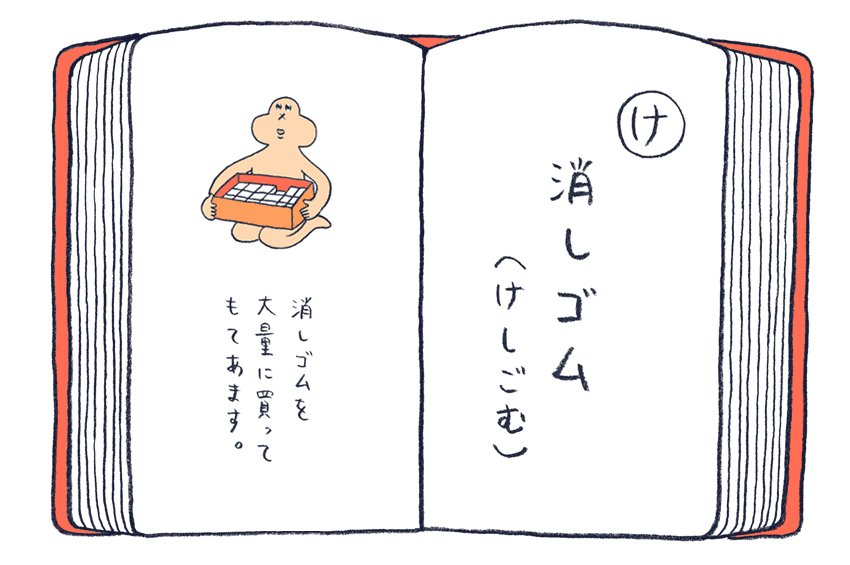 け
消しゴム
（けしごむ）
消しゴムを
大量に買って
もてあます。